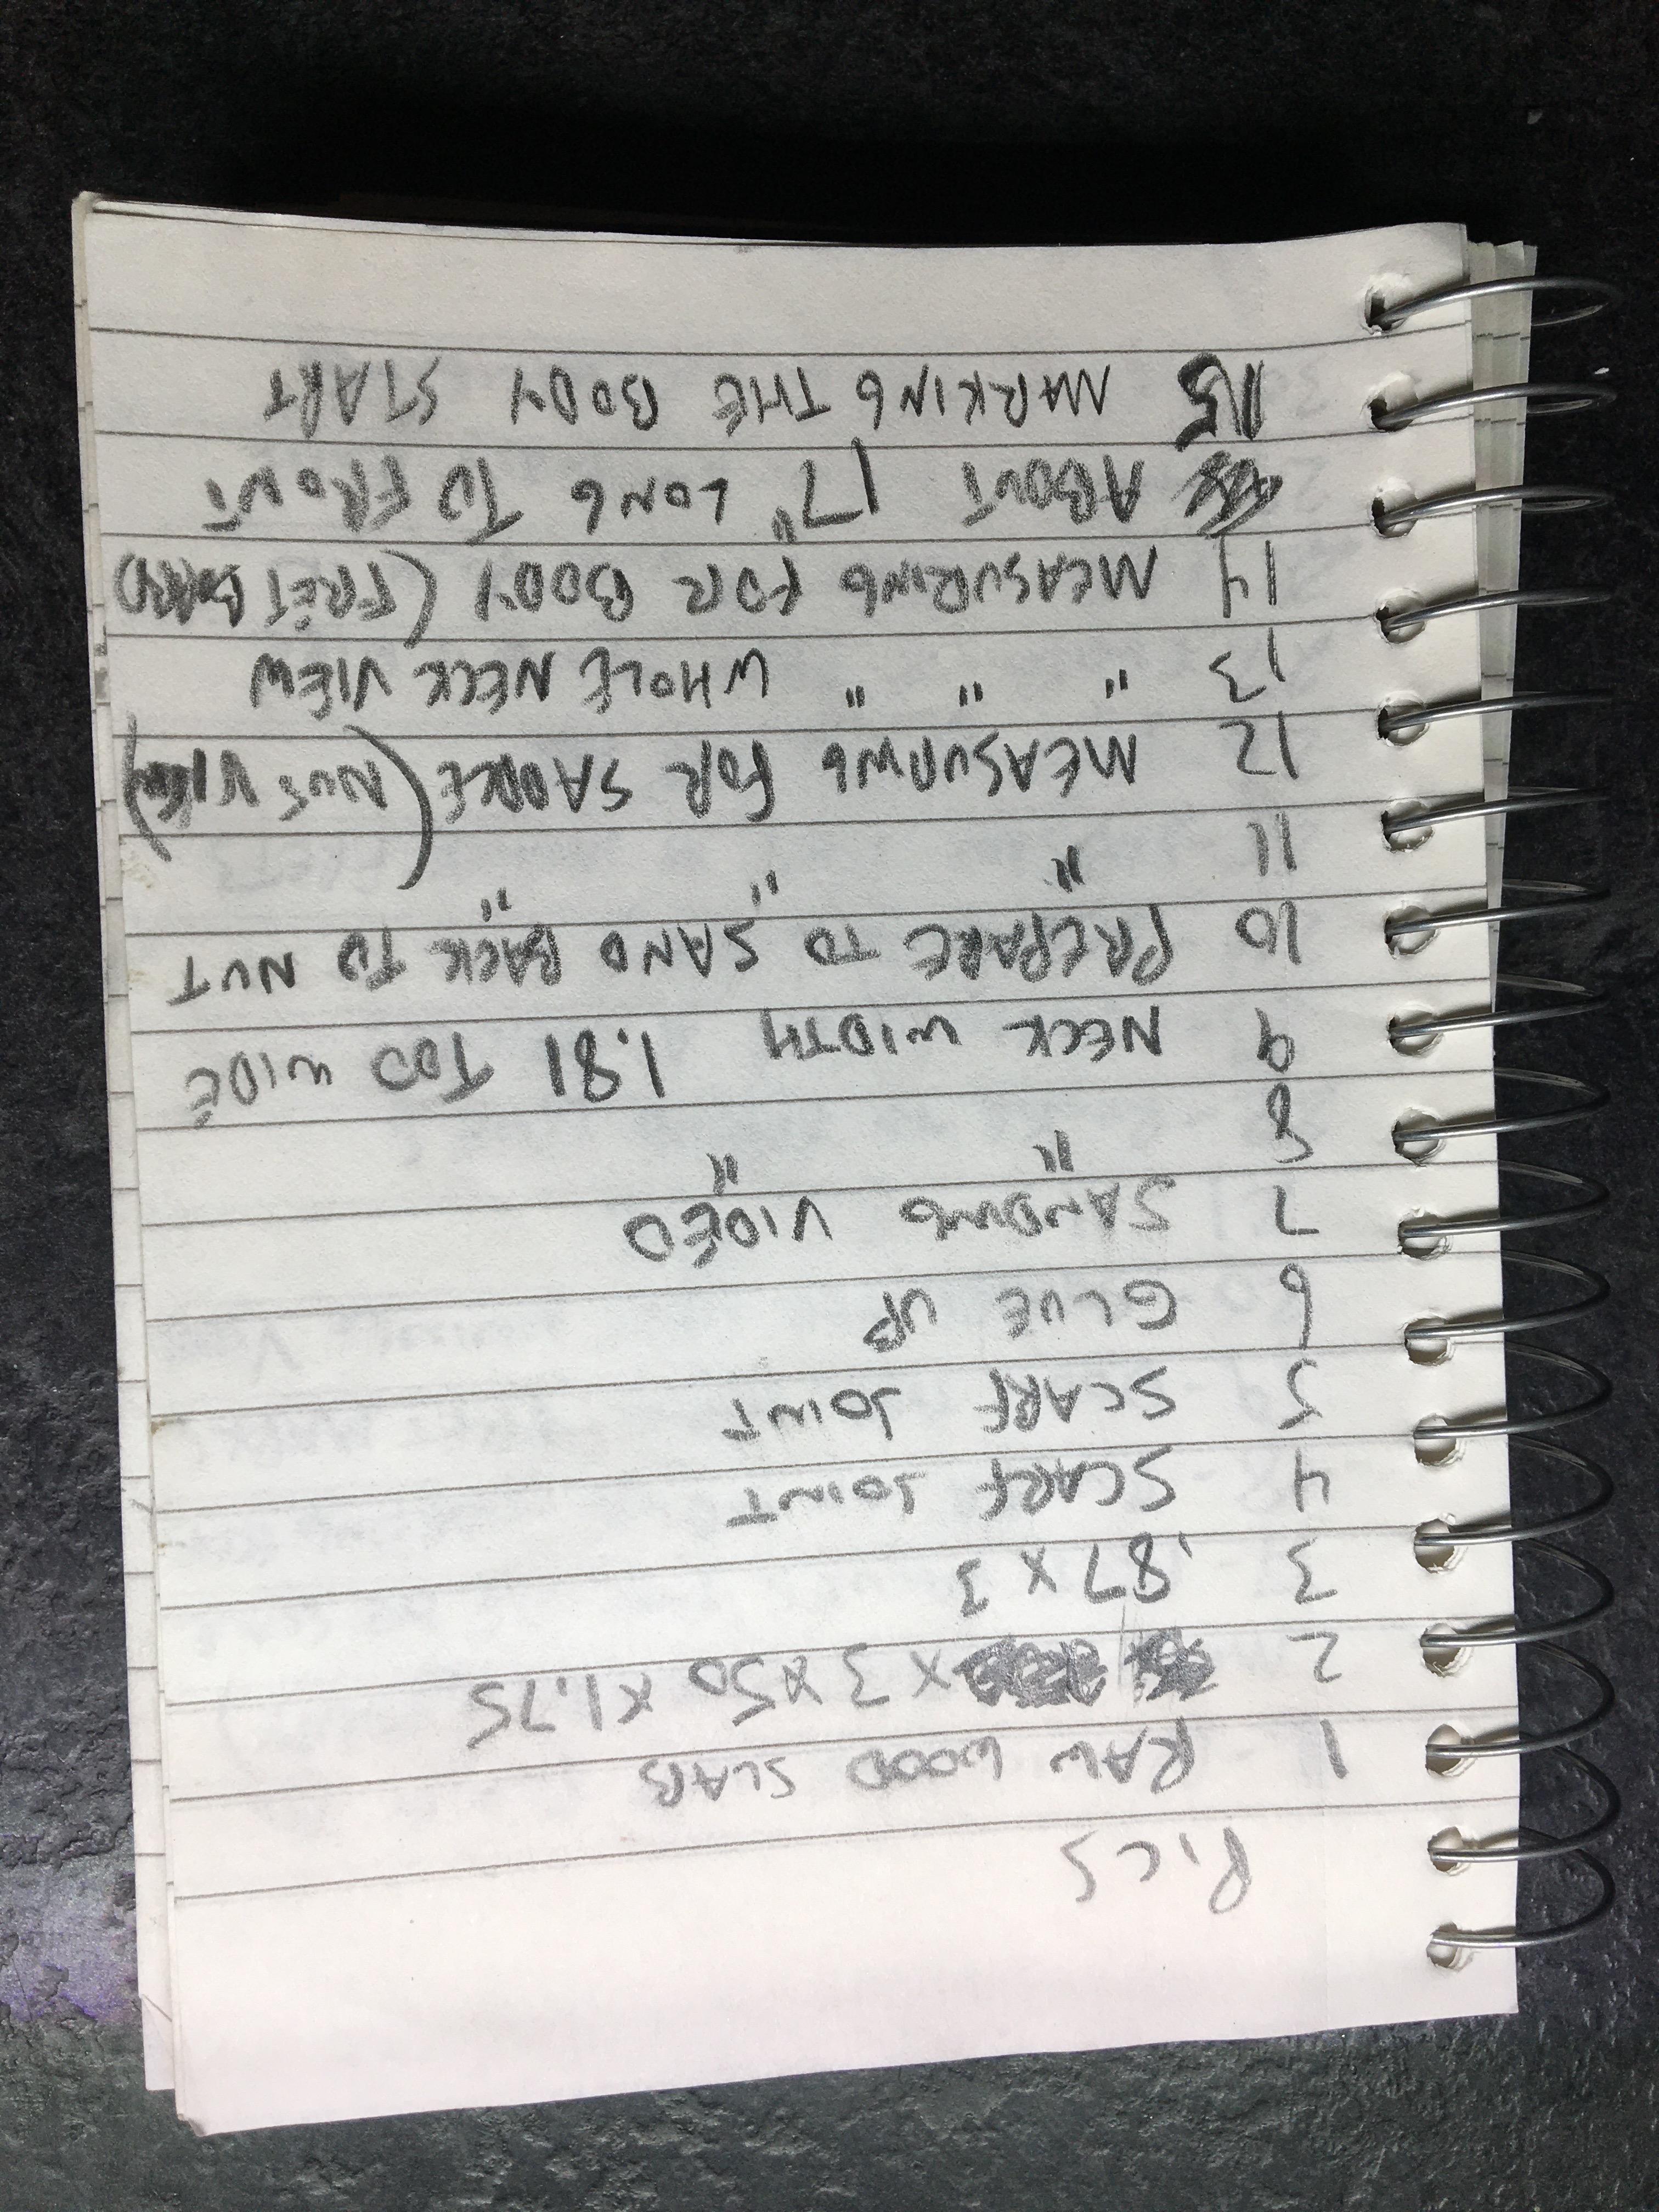 PICS
1 RAW WOOD SLAB
2 x 3 x 50 x 1.75
3 .87 x 3
4 SCARF JOINT
5 SCARF JOINT
6 GLUE UP
7 SANDING VIDEO
8 " "
9 NECK WIDTH 1.81 TOO WIDE
10 PREPARE TO SAND BACK TO NUT
11 " " "
12 MEASURING FOR SADDLE (NUT VIEW)
13 " " " WHOLE NECK VIEW
14 MEASURING FOR BODY (FRET BOARD)
ABOUT 17" LONG TO FRONT
15 MARKING THE BODY START